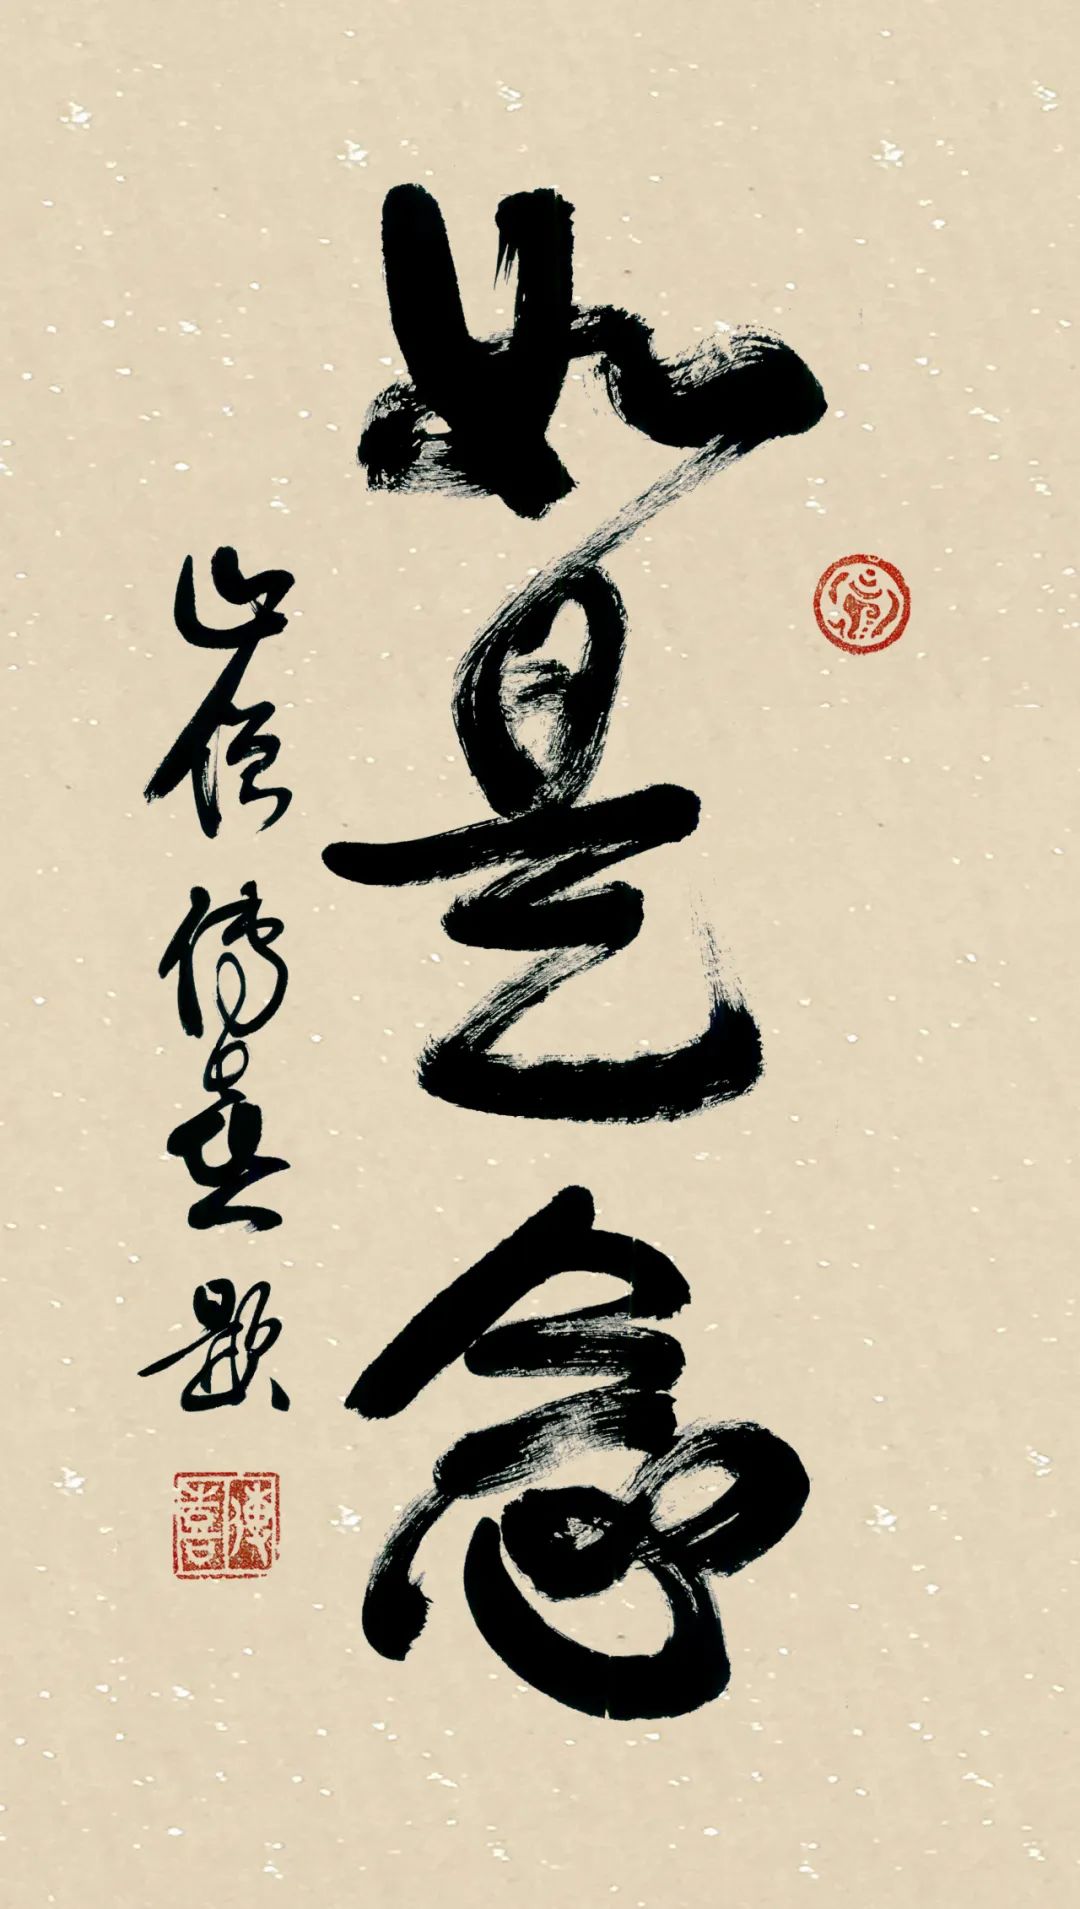 如是念
山僧傳喜題
傳喜